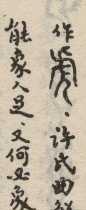 作、許氏曲解
能象人足、又何必象